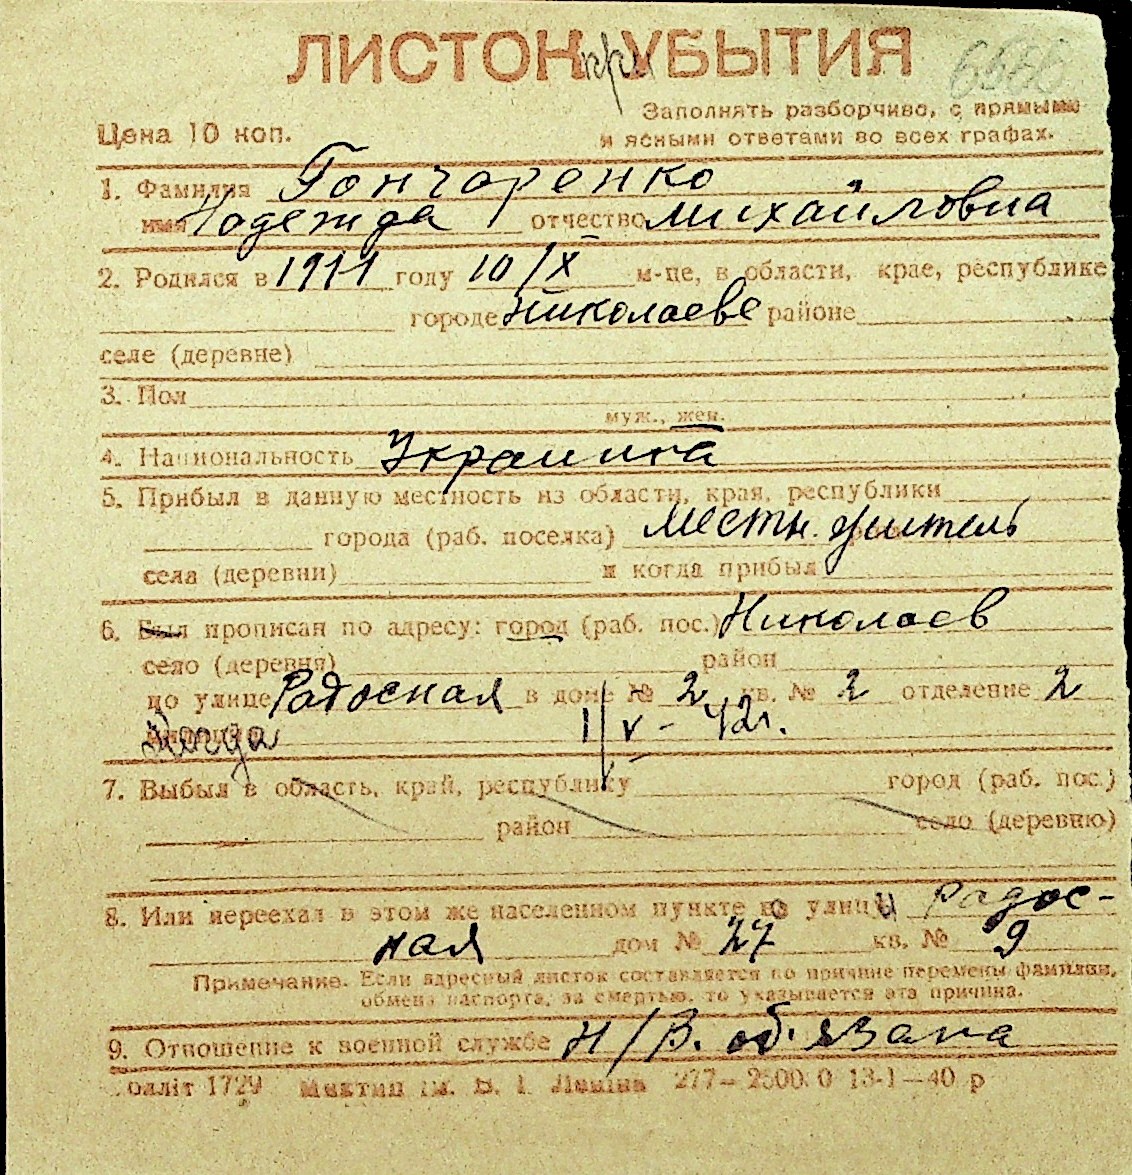 ЛИСТОК при УБЫТИЯ 6666
Заполнять разборчиво, с прямыми
Цена 10 коп. и ясными ответами во всех графах.
1. Фамилия Гончаренко
имя Надежда отчество Михайловна
2. Родился в 1911 году 10/X м-це, в области, крае, республике
городе Николаеве районе
селе (деревне)
3. Пол
муж., жен.
4. Национальность Украинка
5. Прибыл в данную местность из области, края, республики
города (раб. поселка) Местн. житель
села (деревни) и когда прибыл
6. Был прописан по адресу: город (раб. пос.) Николаев
село (деревня) район
по улице Радосная в доме № 2 кв. № 2 отделение 2
Когда 1/V - 42г.
7. Выбыл в область, край, республику город (раб. пос.)
район село (деревню)
8. Или переехал в этом же населенном пункте с улицы Радос-
ная дом № 27 кв. № 9
Примечание. Если адресный листок составляется по причине перемены фамилии,
обмена паспорта, за смертью, то указывается эта причина.
9. Отношение к военной службе Н/В. об'язана
1729 В. І. Леніна 277— 2500 0 13-1—40 р